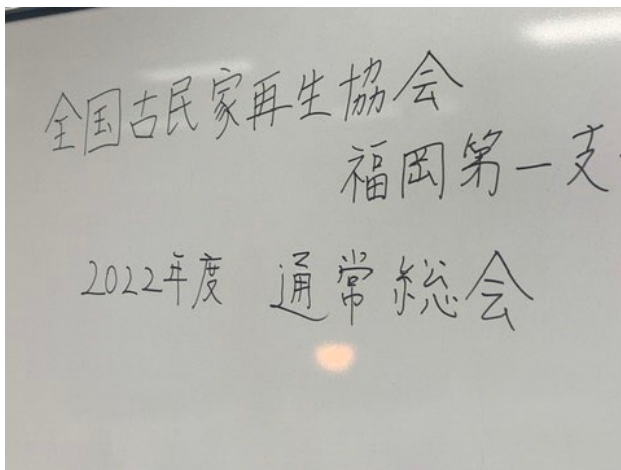 全国古民家再生協会
福岡第一支
2022年度 通常総会